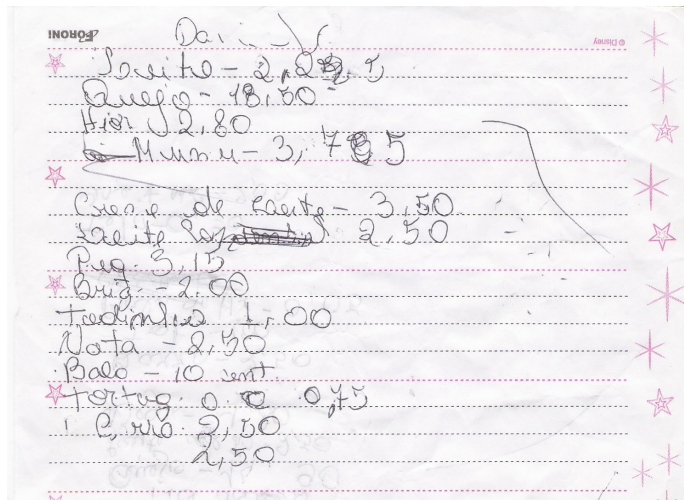 FORONI
© Disney
Leite - 2,25
Queijo - 18,50
2,80
- 3,75
Creme de Leite - 3,50
Leite 2,50
Peq. 3,15
Brig. - 2,00
Todinho 1,00
Nata - 2,50
Balo - 10 cent.
Tortug. 0,75
2,50
2,50